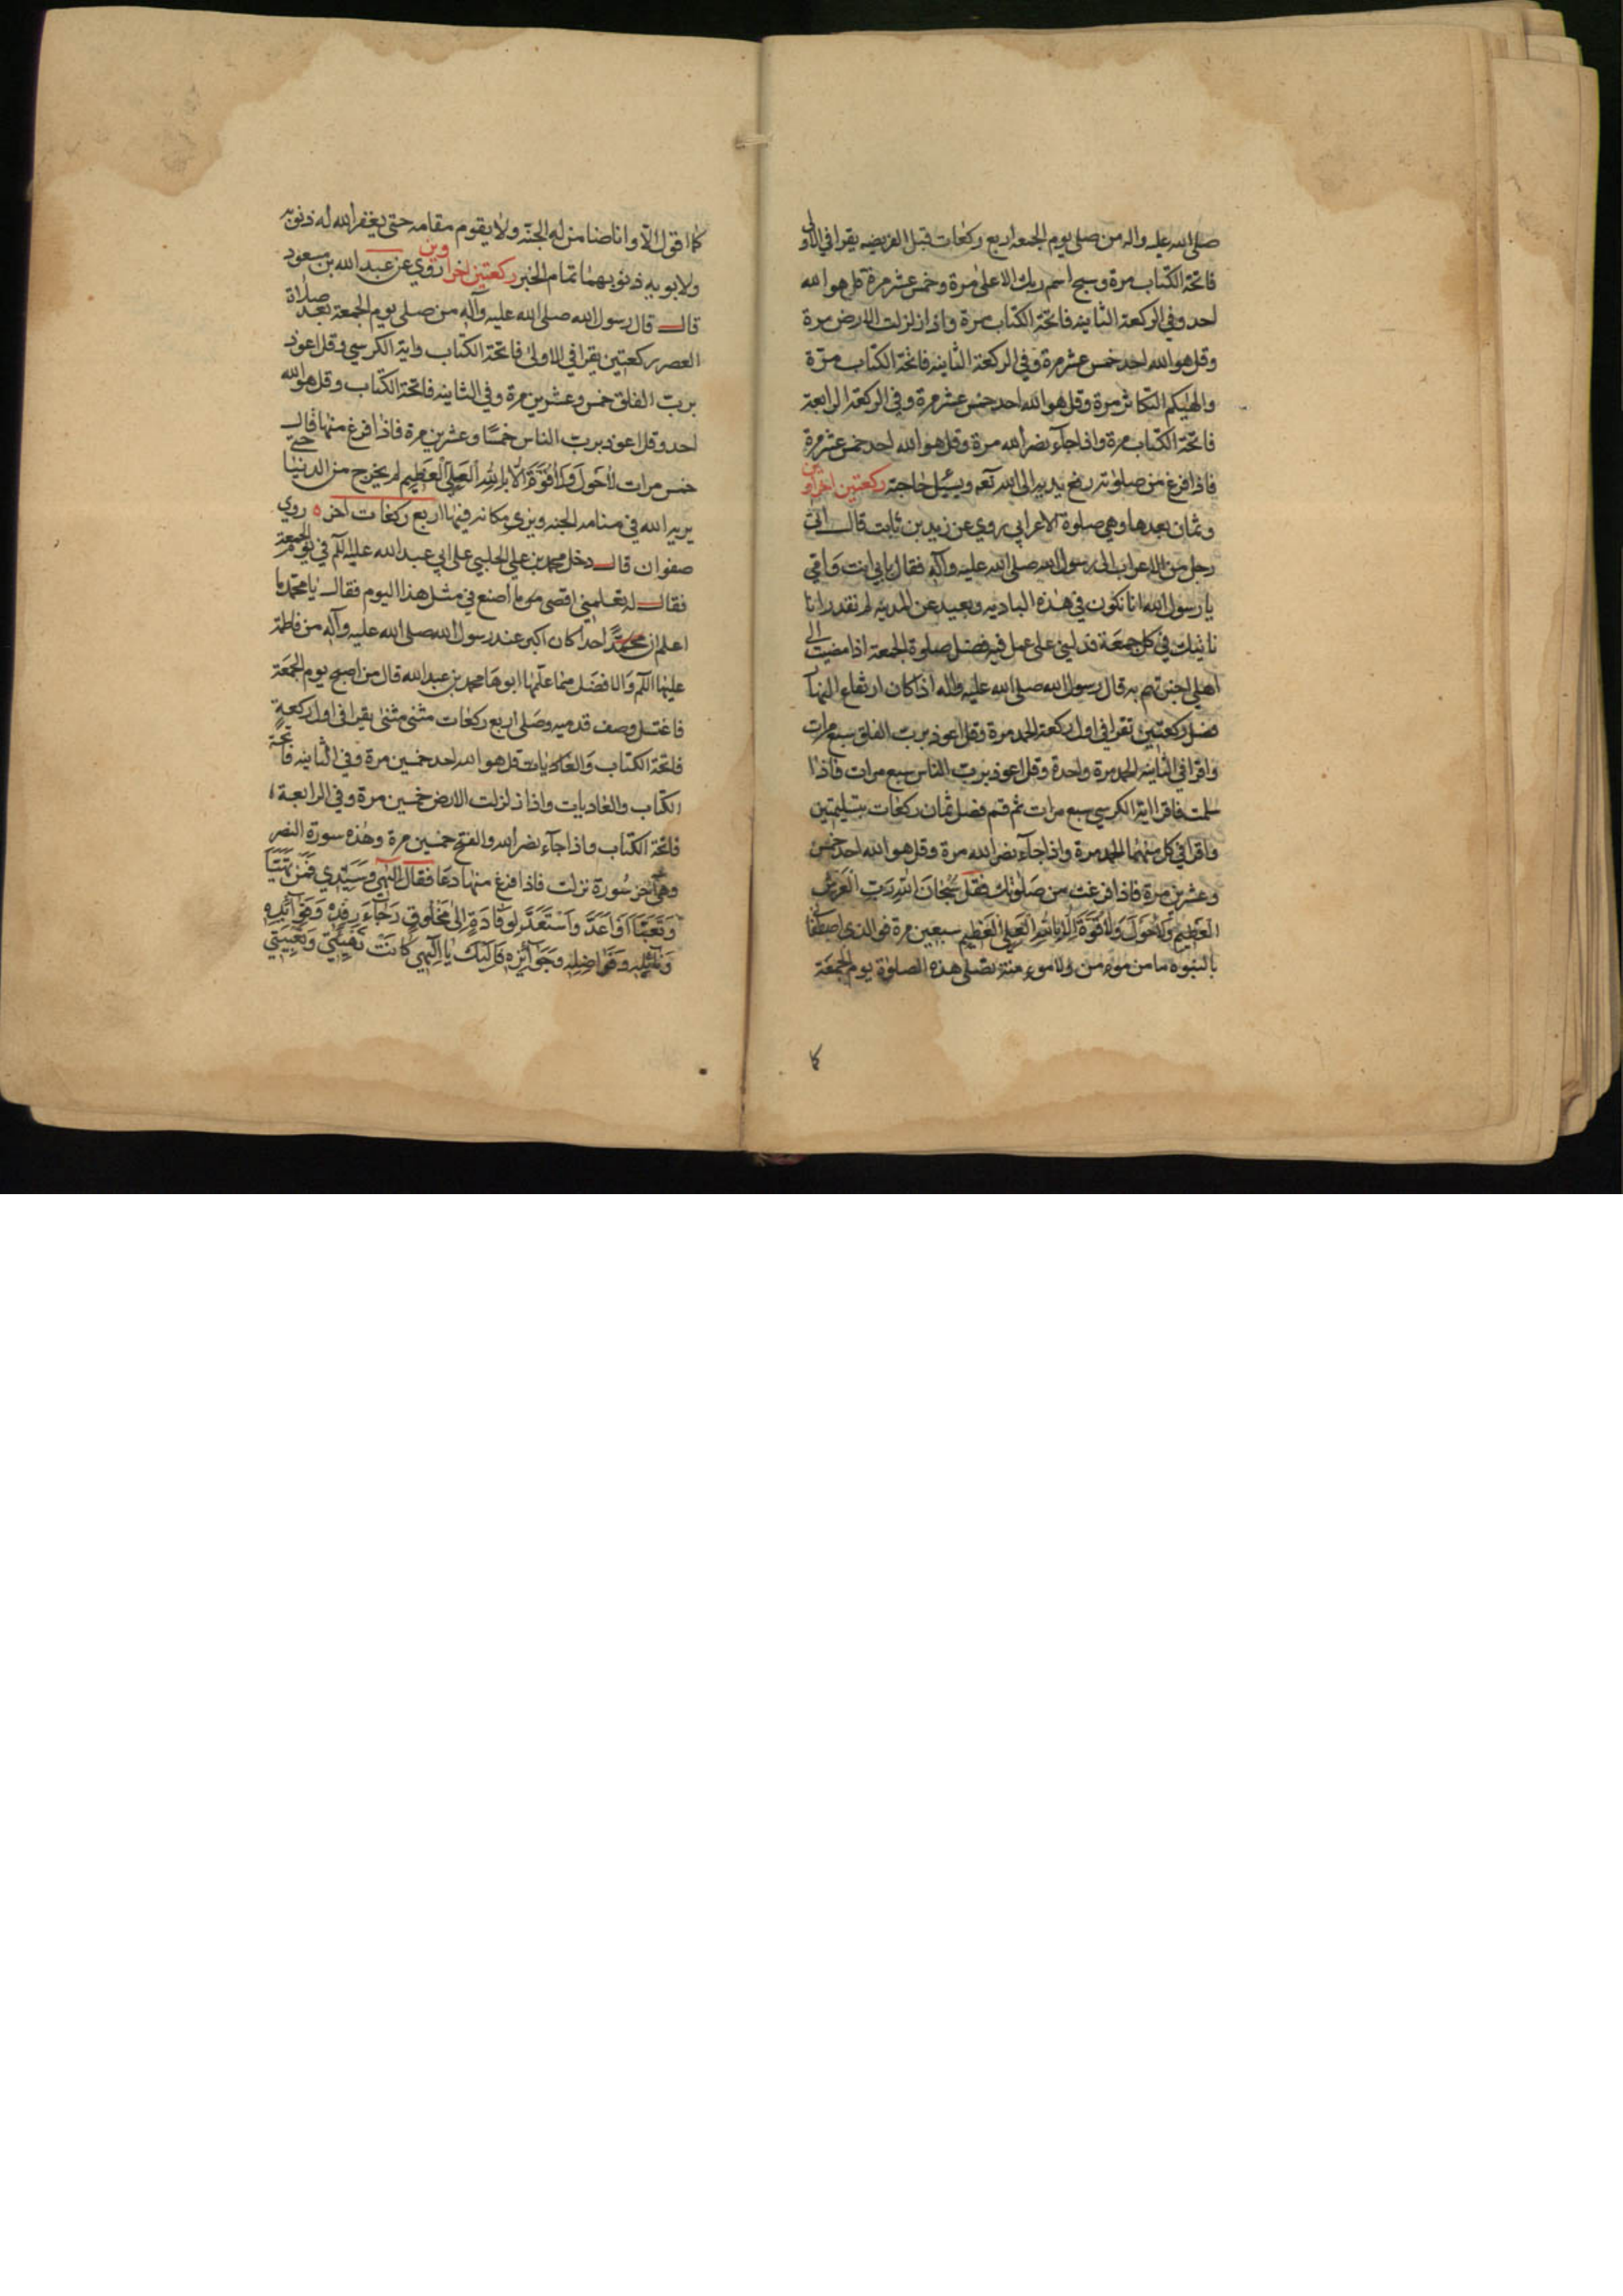 صلى الله عليه واله من صلى يوم الجمعه اربع ركعات قبل الفريضه يقرا في الاولى
فاتحة الكتاب مرة وسبح اسم ربك الاعلى مرة وخمس عشر مرة قل هو الله
احد وفي الركعة الثانيه فاتحة الكتاب مرة واذا زلزلت الارض مرة
وقل هو الله احد خمس عشر مرة وفي الركعة الثانيه فاتحة الكتاب مرّة
والهيكم التكاثر مرة وقل هو الله احد خمس عشر مرة وفي الركعة الرابعة
فاتحة الكتاب مرة واذا جآء نصر الله مرة وقل هو الله احد خمس عشر مرة
فاذا فرغ من صلوته رفع يديه الى الله تعه ويسئل حاجته ركعتين اخراوين
وثمان بعدها وهي صلوة الاعرابي روي عن زيد بن ثابت قال اتى
رجل من الاعراب الى رسول الله صلى الله عليه وآله فقال بابي انت وامي
يا رسول الله انا نكون في هذه الباديه وبعيد عن المدينه لم نقدر انا
ناتيك في كل جمعة فدلني على عمل فيه فضل صلوة الجمعة اذا مضيت الى
اهلي اخبرتهم به قال رسول الله صلى الله عليه واله اذا كان ارتفاع النهار
فصل ركعتين تقرا في اول ركعة الحمد مرة وقل اعوذ برب الفلق سبع مرات
واقرا في الثانية الحمد مرة واحدة وقل اعوذ برب الناس سبع مرات فاذا
سلمت فاقرا اية الكرسي سبع مرات ثم قم فصل ثمان ركعات بتسليمتين
واقرا في كل منهما الحمد مرة واذا جآء نصر الله مرة وقل هو الله احد خمس
وعشرين مرة فاذا فرغت من صَلوتك فقل سُبْحَانَ اللهِ رَبِّ الْعَرْشِ
الْعَظِيمِ وَلَا حَوْلَ وَلَا قُوَّةَ اِلَّا بِاللهِ الْعَلِيِّ الْعَظِيمِ سبعين مرة فوالذي اصطفاني
بالنبوه ما من مومن ولا مومنة يصلى هذه الصلوة يوم الجمعة
كما
كما اقول الّا وانا ضامن له الجنّه ولا يقوم مقامه حتى يغفر الله له ذنوبه
ولابويه ذنوبهما تمام الخبر ركعتين اخراوين روي عن عبد الله بن مسعود
قال قال رسول الله صلى الله عليه وآله من صلى يوم الجمعة بعد صلاة
العصر ركعتين يقرا في الاولى فاتحة الكتاب واية الكرسي وقل اعوذ
برب الفلق خمس وعشرين مرة وفي الثانيه فاتحة الكتاب وقل هو الله
احد وقل اعوذ برب الناس خمسًا وعشرين مرة فاذا فرغ منها قال
خمس مرات لَا حَوْلَ وَلَا قُوَّةَ اِلَّا بِاللهِ الْعَلِيِّ الْعَظِيمِ لم يخرج من الدنيا حتى
يريه الله في منامه الجنه ويرى مكانه فيها اربع ركعات اخر ه روي
صفوان قال دخل محمد بن علي الحلبي على ابي عبد الله عليه السلم في يوم الجمعة
فقال له تعلمني افضل ما اصنع في مثل هذا اليوم فقال يا محمد ما
اعلم ان احداً كان اكبر عند رسول الله صلى الله عليه وآله من فاطمة
عليها السلم ولا افضل مما علّمها ابوها محمد بن عبد الله قال من اصبح يوم الجمعة
فاغتسل وصف قدميه وصلى اربع ركعات مثنى مثنى يقرا في اول ركعةٍ
فاتحة الكتاب والعاديات قل هو الله احد خمسين مرة وفي الثانيه فاتحة
الكتاب والعاديات واذا زلزلت الارض خمسين مرة وفي الرابعة
فاتحة الكتاب واذا جآء نصر الله والفتح خمسين مرة وهذه سورة النصر
وهي آخر سُورة نزلت فاذا فرغ منها دعا فقال اِلٰهي وَسَيِّدِي فَمَنْ تَهَيَّأَ
وَتَعَبَّأَ اَوْ اَعَدَّ وَاسْتَعَدَّ لِوِفَادَةٍ اِلىٰ مَخْلُوقٍ رَجَاءَ رِفْدِهِ وَفَوَائِدِهِ
وَنَائِلِهِ وَفَوَاضِلِهِ وَجَوَائِزِهِ فَاِلَيْكَ يَا اِلٰهِي كَانَتْ تَهْيِئَتِي وَتَعْبِيَتِي